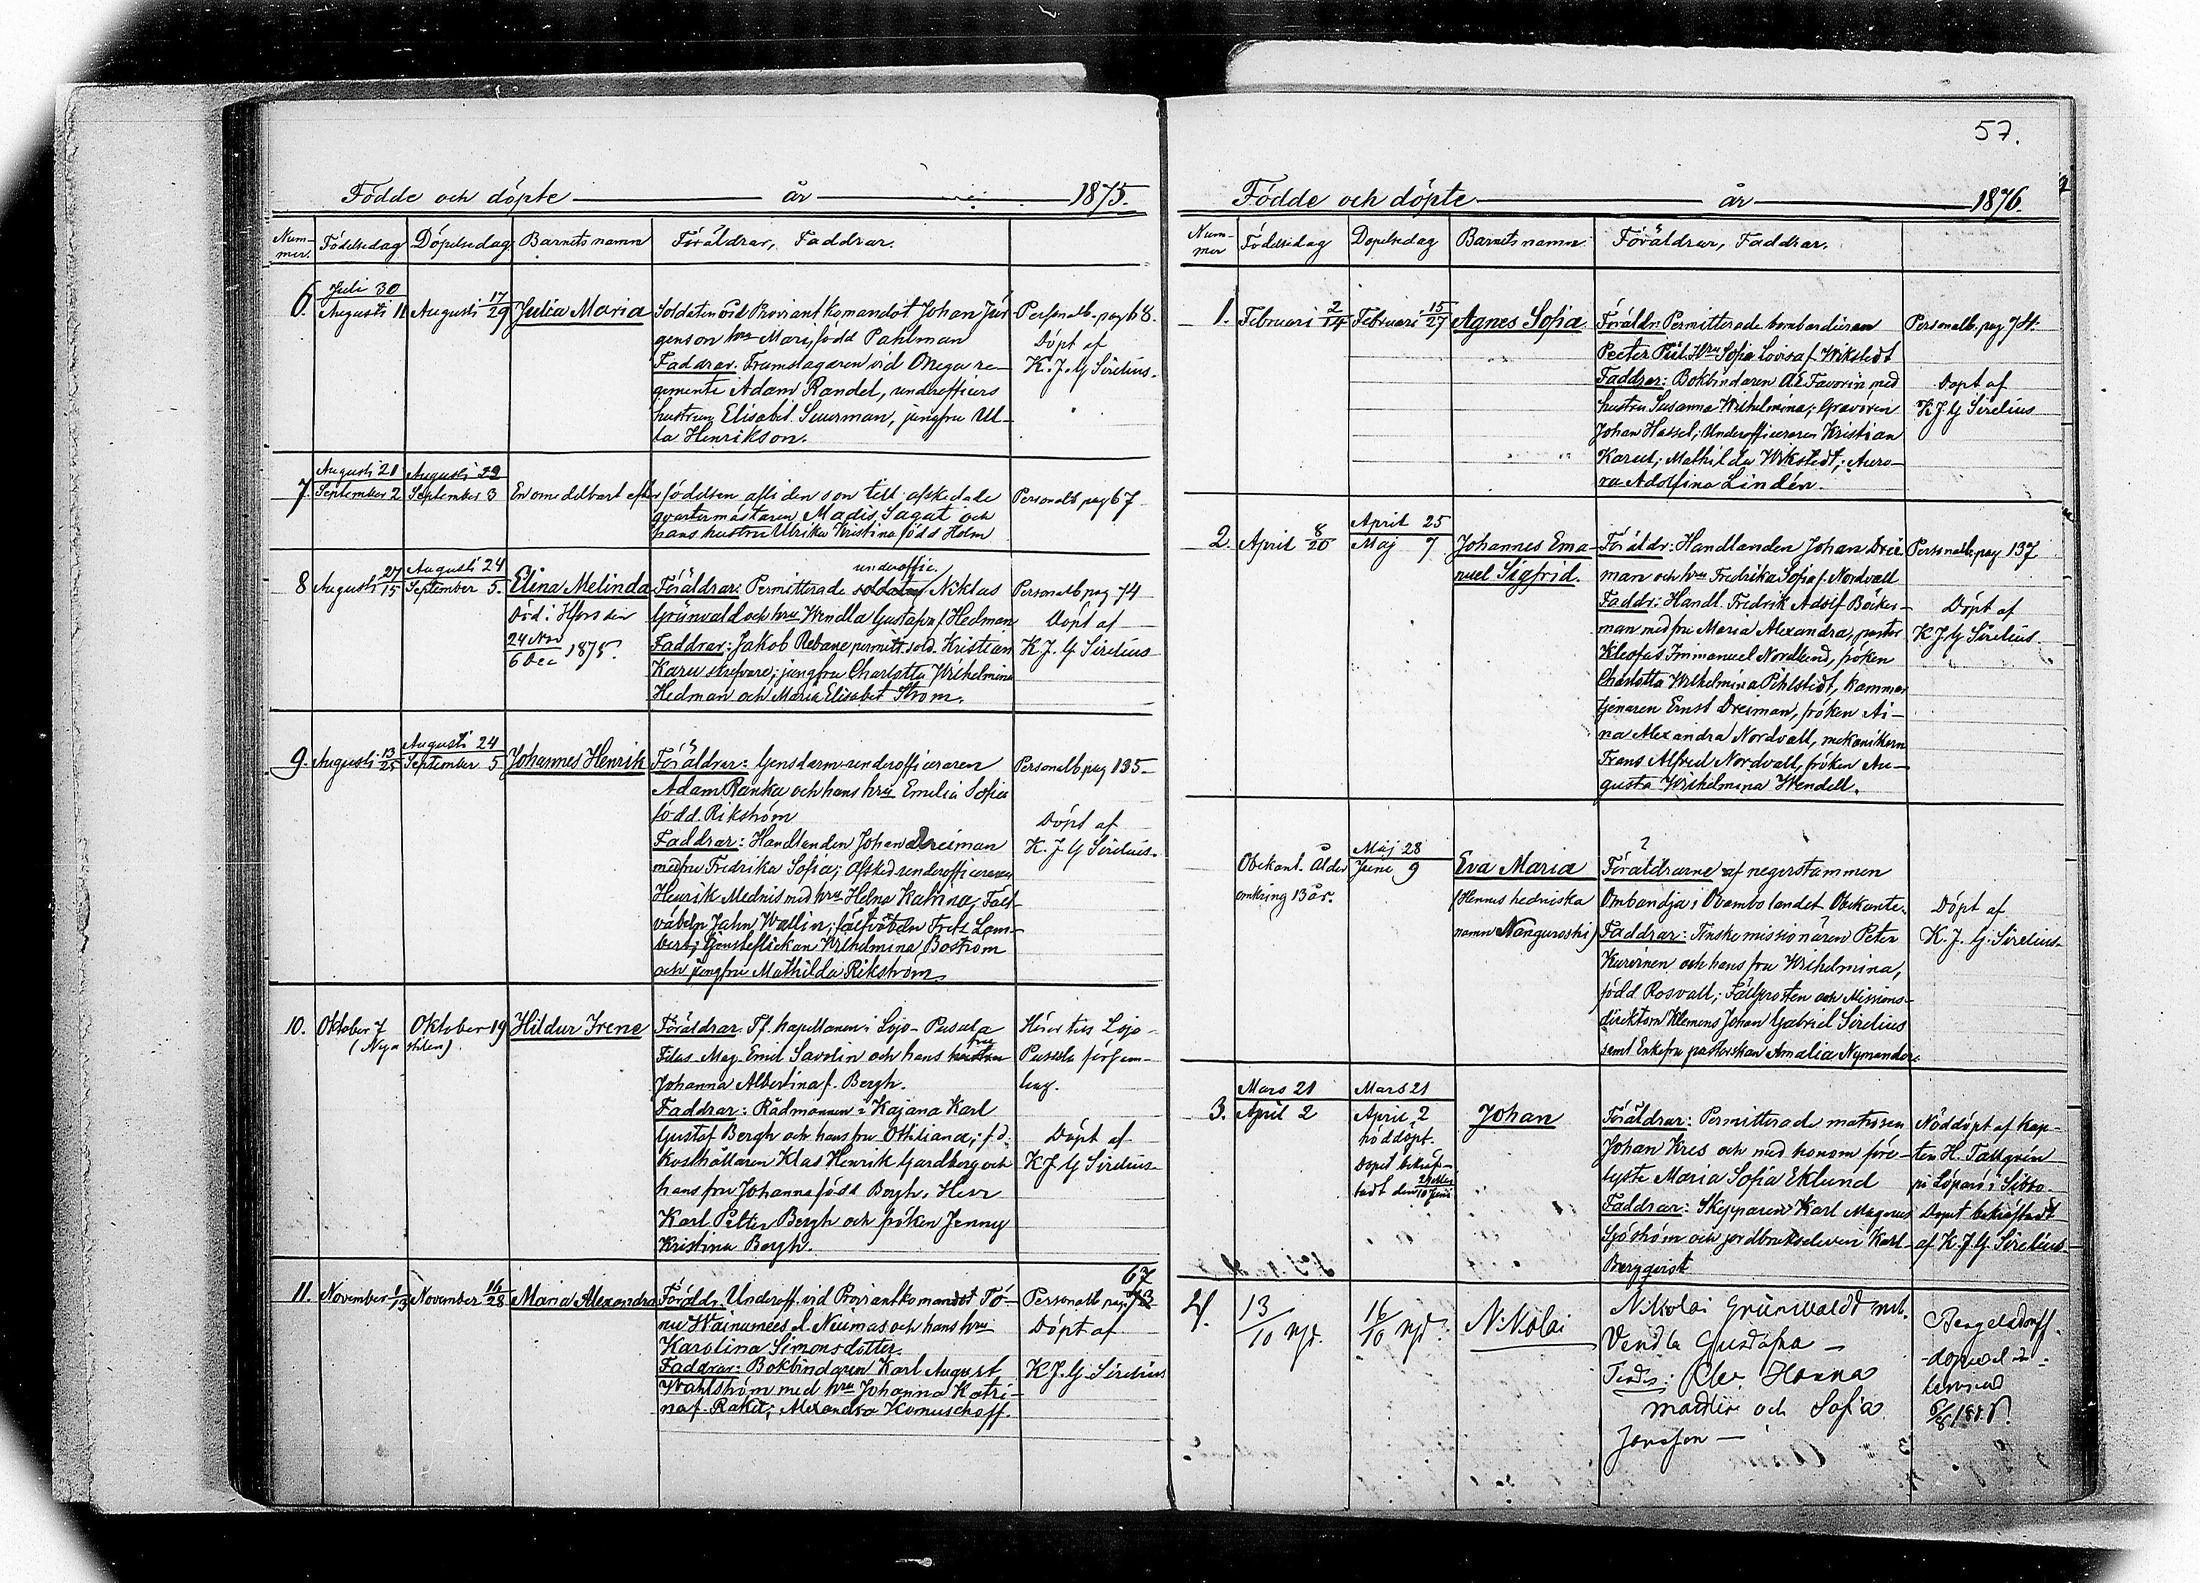 Födde och döpte år 1875.
Nummer. Födelsedag Döpelsedag Barnets namn Föräldrar, Faddrar.
6. Juli 30 / Augusti 11 Augusti 17/29 Julia Maria
Soldaten vid Proviantkomandot Johan Jür
genson hru Mari, född Pahlman
Faddrar. Trumslagaren vid Onega re-
gemente Adam Randel, underofficers
hustrun Elisabet Suurman, jungfru Ul-
la Henrikson.
Personalb. pag 68.
Döpt af
K. J. G Sirelius.
7. Augusti 21 / September 2 Augusti 22 / September 3 En omedelbart efter födelsen afliden son till afskedade
qvartermästaren Madis Sagat och
hans hustru Ulrika Kristina född Holm
Personalb. pag 67
8 Augusti 27/15 Augusti 24 / September 5. Elina Melinda
Död i Hfors den
24 Nov
6 Dec 1875.
underoffic.
Föräldrar. Permitterade soldaten Niklas
Grünvald och hru Wendla Gustafva f. Hedman
Faddrar: Jakob Rebane permitt. sold. Kristian
Karu, jungfru Charlotta Wilhelmina
Hedman och Maria Elisabet Ström.
Personalb pag 74
Döpt af
K. J. G Sirelius
9. Augusti 13/25 Augusti 24 / September 5 Johannes Henrik
Föräldrar: Gensdarm-underofficeraren
Adam Ranka och hans hru Emelia Sofia
född Rikström
Faddrar: Handlanden Johan Dreiman
med fru Fredrika Sofia; Afsked underofficeraren
Henrik Mednis med hru Helena Katrina; Fält-
väbeln Jahn Wallin; fältväbeln Fritz Lam-
bert; tjensteflickan Wilhelmina Boström
och jungfru Mathilda Rikström.
Personalb pag 135
Döpt af
K. J. G Sirelius.
10. Oktober 7 Oktober 19 Hildur Irene
(Nya stilen)
Föräldrar. Tf. kapellanen i Lojo-Pusula
fru
Filos. Mag. Emil Savolin och hans hustru
Johanna Albertina f. Bergh.
Faddrar: Rådmannen i Kajana Karl
Gustaf Bergh och hans fru Othiliana; f.d.
kosthållaren Klas Henrik Gardberg och
hans fru Johanna född Bergh, Herr
Karl Petter Bergh och fröken Jenny
Kristina Bergh.
Hörer till Lojo-
Pusula församl-
ling.
Döpt af
K J G Sirelius
67
11. November 1/13 November 16/28 Maria Alexandra
Föräldr. Underoff. vid Proviantkomandot Tö-
nu Wainumees l. Neumas och hans hru
Karolina Simonsdotter.
Faddrar: Bokbindaren Karl August
Wahlström med hru Johanna Katri-
na f. Raket; Alexandra Komuschoff.
Personalb pag 73
Döpt af
K. J. G Sirelius
57.
Födde och döpte år 1876.
Nummer Födelsedag Döpelsedag Barnets namn Föräldrar, Faddrar.
1. Februari 2/14 Februari 15/27 Agnes Sofia
Föräldr: Permitterade bombardieren
Peeter Piil, Hru Sofia Lovisa f. Wikstedt
Faddrar: Bokbindaren Ax Favorin med
hustru Susanna Wilhelmina; Gravören
Johan Hassel; Underofficeraren Kristian
Karu; Mathilda Wikstedt; Auro-
ra Adolfina Lindén.
Personalb. pag 74.
Döpt af
K J. G Sirelius
2. April 8/20 April 25 / Maj 7 Johannes Ema-
nuel Sigfrid.
Föräldr: Handlanden Johan Drei
man och hru Fredrika Sofia f. Nordvall
Faddr: Handl. Fredrik Adolf Böcker-
man med fru Maria Alexandra, pastor
Kleofas Immanuel Nordlund, fröken
Charlotta Wilhelmina Pihlstedt, kammar
tjenaren Ernst Dreiman, fröken Ai-
na Alexandra Nordvall, mekanikern
Frans Alfred Nordvall, fröken Au-
gusta Wilhelmina Wendell.
Personalb. pag 137
Döpt af
K. J. G Sirelius.
Obekant. ålder
omkring 13 år.
Maj 28 / Juni 9 Eva Maria
(Hennes hedniska
namn Nanguroshi)
Föräldrarne af negerstammen
Ombandja i Ovambolandet Obekante.
Faddrar: Finske missionären Peter
Kurvinen och hans fru Wilhelmina,
född Rosvall; Fältprosten och Missions-
direktorn Klemens Johan Gabriel Sirelius
samt Enkefru pastorskan Amalia Nymander.
Döpt af
K. J. G. Sirelius
3. Mars 21 / April 2 Mars 21 / April 2
nöddöpt.
Dopet bekräf-
tadt den
Johan
Föräldrar: Permitterade matrosen
Johan Kres och med honom för-
lofvade Maria Sofia Eklund
Faddrar: Skepparen Karl Magnus
Sjöström och jordbrukseleven Karl
Bergqvist
Nöddöpt af kap-
ten H. Tallgrén
på Löparö i Sibbo.
Dopet bekräftadt
af K. J. G. Sirelius
4. 13/10 16/10 Nikolai
Nikolai Grünwaldt
Vendla Gustafva —
Hanna
och Sofia